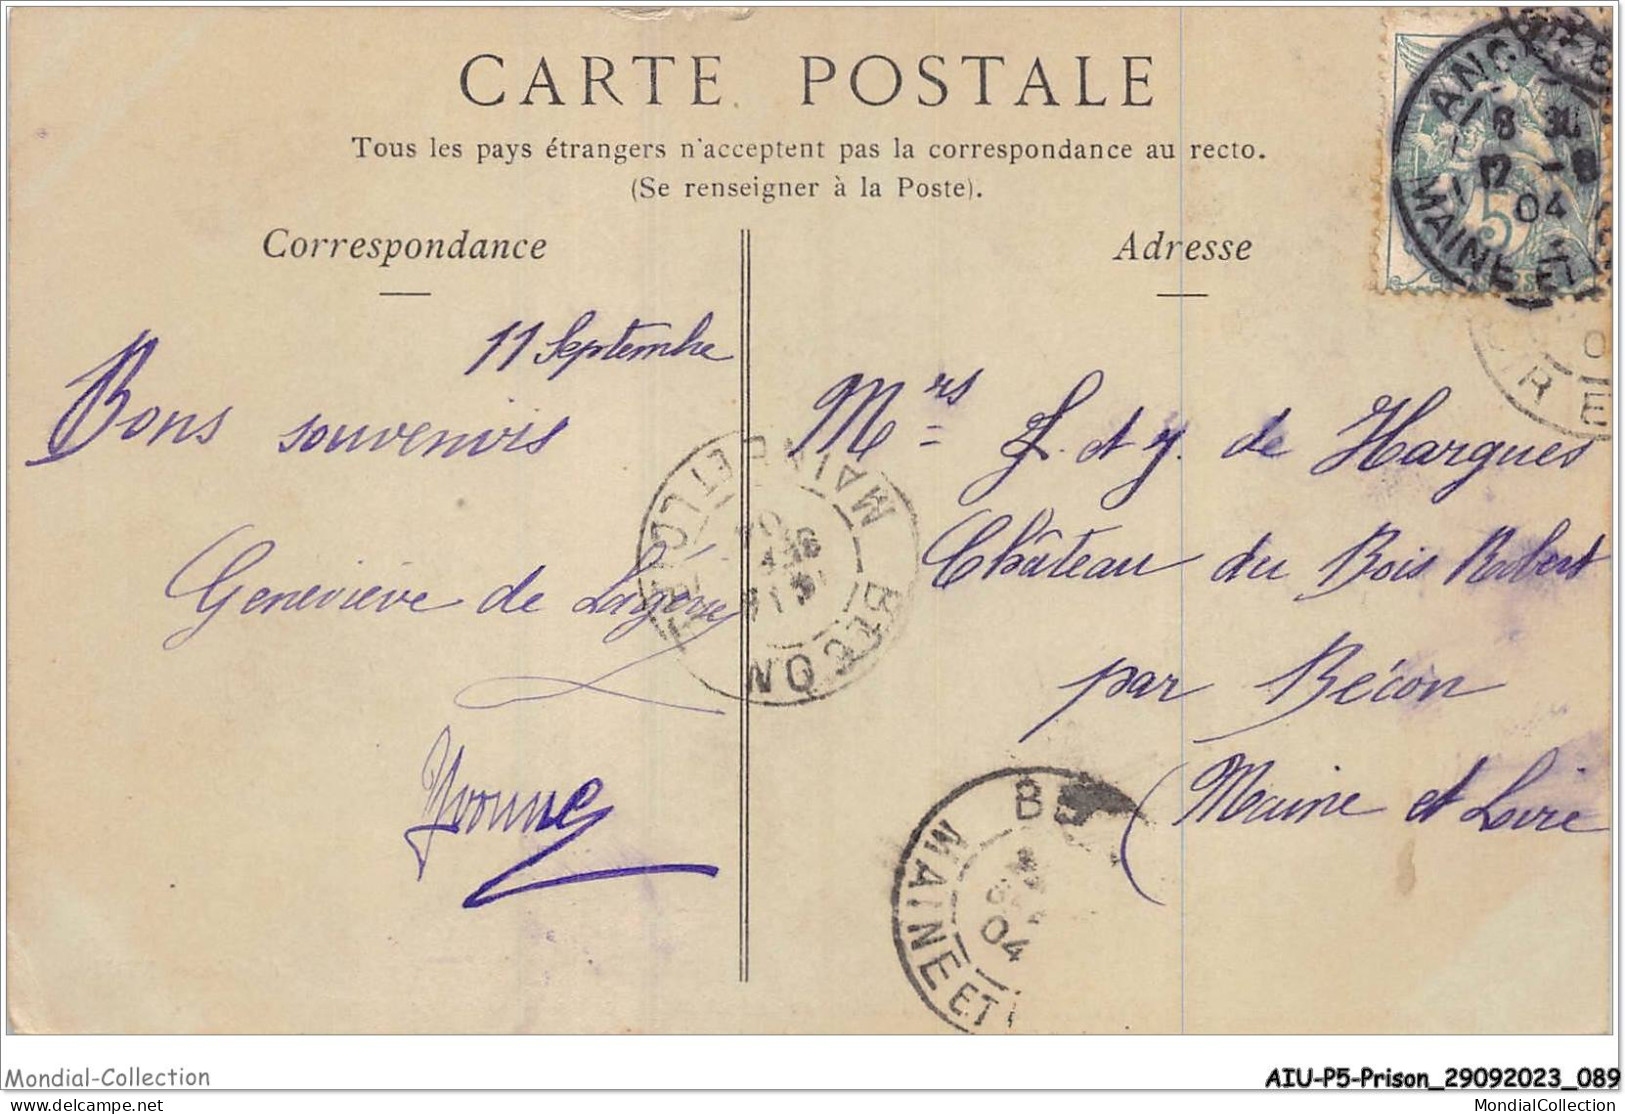 CARTE POSTALE
Tous les pays étrangers n'acceptent pas la correspondance au recto.
(Se renseigner à la Poste).
Correspondance
Adresse
11 Septembre
Bons souvenirs
Geneviève de
Yvonne
Mrs
de Hargues
Château du Bois Robert
par Bécon
(Maine et Loire
8 30
12 - 9
04
MAINE ET
5
BECON
MAINE ET LOIRE
BE
MAINE ET
04
Mondial-Collection
AIU-P5-Prison_29092023_089
www.delcampe.net
MondialCollection